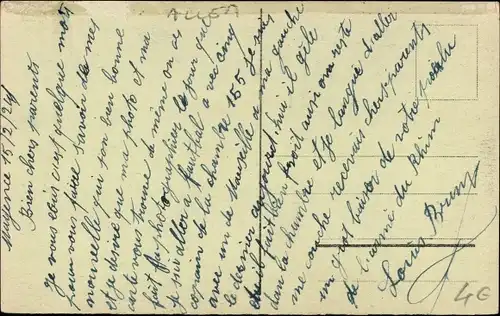 Mayence 15/2/24
Bien chers parents
Je vous ecus c'est quelque mots
pour vous faire savoir de mes
nouvelle qui son bien bonne
et je désiré que ma photo et ma
carte vous trouve de même on as
fait photographier le jour que
je sui allor a fruithal avec cinq
copain de la chambre 155 je suis
avec un de Marseille a ma gauche
le dernier aujourd'hui il gèle
il fait bien froit ausi on reste
dans la chambre et je langui d'aller
me couché recevais chers parents
un gros baiser de votre pioupiou
de l'armé du Rhin
Louis Brun
4G